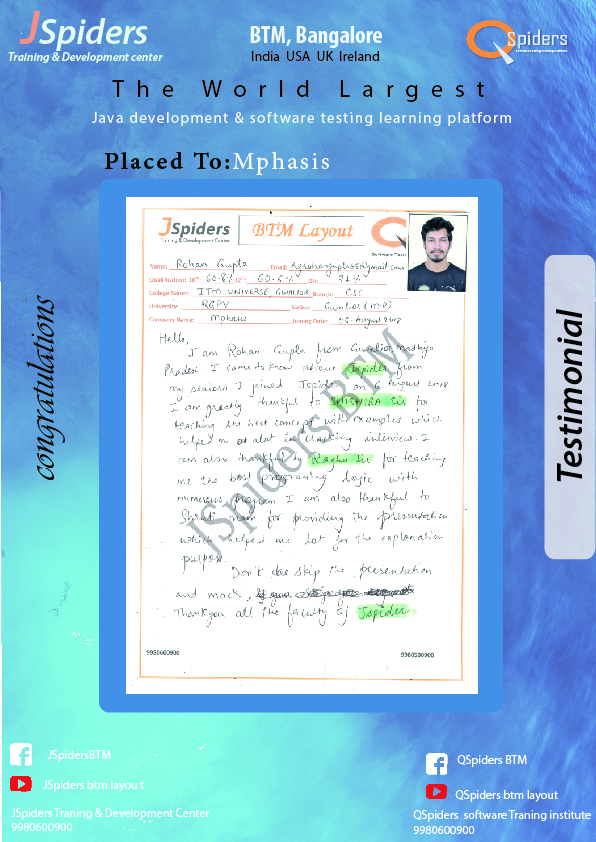 JSpiders
Training & Development center
BTM, Bangalore
India USA UK Ireland
QSpiders
The World Largest
Java development & software testing learning platform
Placed To:Mphasis
congratulations
Testimonial
JSpiders
Training & Development Center
BTM Layout
Name: Rohan Gupta Email:
Qualification: 10th 60.8% 12th 60.6% 71%
College Name: ITM UNIVERSE, GWALIOR Branch: CSE
University: RGPV Native: Gwalior (M.P)
Company Name: Mphasis Joining Date: 06-August 2018
Hello,
I am Rohan Gupta from Gwalior, Madhya
Pradesh I came to know about Jspider from
my seniors. I joined Jspider on 6 August 2018.
I am greatly thankful to SHISHIRA Sir for
teaching the best concept with examples which
helped me alot in cracking interview. I
am also thankful to Raghu Sir for teaching
me the best programing logic with
numerous program. I am also thankful to
Shruti mam for providing the presentation
which helped me lot for the explanation
purpose.
Don't skip the presentation
and mock,
Thankyou all the faculty of Jspider
JSpiders BTM
9980600900 9980500900
JSpidersBTM
JSpiders btm layou t
JSpiders Traning & Development Center
9980600900
QSpiders BTM
QSpiders btm layout
QSpiders software Traning institute
9980600900